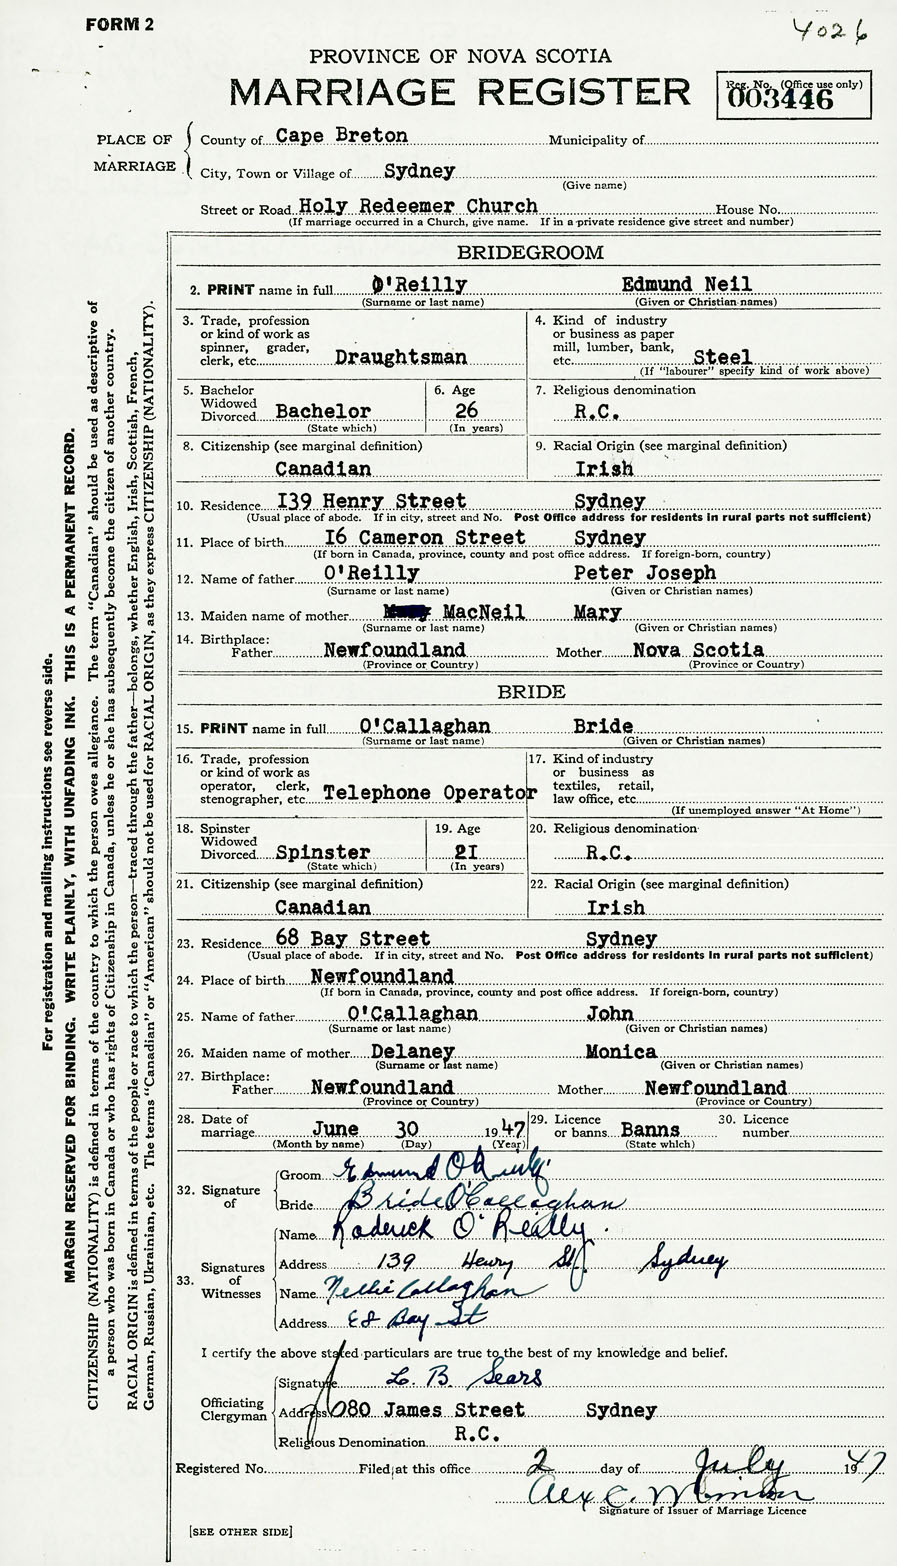 FORM 2
4026
PROVINCE OF NOVA SCOTIA
MARRIAGE REGISTER
Reg. No. (Office use only)
003446
PLACE OF MARRIAGE
County of Cape Breton Municipality of
City, Town or Village of Sydney
(Give name)
Street or Road Holy Redeemer Church House No.
(If marriage occurred in a Church, give name. If in a private residence give street and number)
BRIDEGROOM
2. PRINT name in full O'Reilly Edmund Neil
(Surname or last name) (Given or Christian names)
3. Trade, profession
or kind of work as
spinner, grader,
clerk, etc. Draughtsman
4. Kind of industry
or business as paper
mill, lumber, bank,
etc. Steel
(If "labourer" specify kind of work above)
5. Bachelor
Widowed
Divorced Bachelor
(State which)
6. Age
26
(In years)
7. Religious denomination
R.C.
8. Citizenship (see marginal definition)
Canadian
9. Racial Origin (see marginal definition)
Irish
10. Residence I39 Henry Street Sydney
(Usual place of abode. If in city, street and No. Post Office address for residents in rural parts not sufficient)
11. Place of birth I6 Cameron Street Sydney
(If born in Canada, province, county and post office address. If foreign-born, country)
12. Name of father O'Reilly Peter Joseph
(Surname or last name) (Given or Christian names)
13. Maiden name of mother MacNeil Mary
(Surname or last name) (Given or Christian names)
14. Birthplace:
Father Newfoundland Mother Nova Scotia
(Province or Country) (Province or Country)
BRIDE
15. PRINT name in full O'Callaghan Bride
(Surname or last name) (Given or Christian names)
16. Trade, profession
or kind of work as
operator, clerk,
stenographer, etc. Telephone Operator
17. Kind of industry
or business as
textiles, retail,
law office, etc.
(If unemployed answer "At Home")
18. Spinster
Widowed
Divorced Spinster
(State which)
19. Age
2I
(In years)
20. Religious denomination
R.C.
21. Citizenship (see marginal definition)
Canadian
22. Racial Origin (see marginal definition)
Irish
23. Residence 68 Bay Street Sydney
(Usual place of abode. If in city, street and No. Post Office address for residents in rural parts not sufficient)
24. Place of birth Newfoundland
(If born in Canada, province, county and post office address. If foreign-born, country)
25. Name of father O'Callaghan John
(Surname or last name) (Given or Christian names)
26. Maiden name of mother Delaney Monica
(Surname or last name) (Given or Christian names)
27. Birthplace:
Father Newfoundland Mother Newfoundland
(Province or Country) (Province or Country)
28. Date of
marriage June 30 1947
(Month by name) (Day) (Year)
29. Licence
or banns Banns
(State which)
30. Licence
number
32. Signature of
Groom Edmund O'Reilly
Bride Bride O'Callaghan
33. Signatures of Witnesses
Name Roderick O'Reilly
Address 139 Henry St. Sydney
Name Nellie Callaghan
Address 68 Bay St
I certify the above stated particulars are true to the best of my knowledge and belief.
Officiating Clergyman
Signature L. B. Sears
Address 080 James Street Sydney
Religious Denomination R.C.
Registered No. Filed at this office 2 day of July 1947
Alex C.
Signature of Issuer of Marriage Licence
[SEE OTHER SIDE]
For registration and mailing instructions see reverse side.
MARGIN RESERVED FOR BINDING. WRITE PLAINLY, WITH UNFADING INK. THIS IS A PERMANENT RECORD.
CITIZENSHIP (NATIONALITY) is defined in terms of the country to which the person owes allegiance. The term "Canadian" should be used as descriptive of
a person who was born in Canada or who has rights of Citizenship in Canada, unless he or she has subsequently become the citizen of another country.
RACIAL ORIGIN is defined in terms of the people or race to which the person—traced through the father—belongs, whether English, Irish, Scottish, French,
German, Russian, Ukrainian, etc. The terms "Canadian" or "American" should not be used for RACIAL ORIGIN, as they express CITIZENSHIP (NATIONALITY).